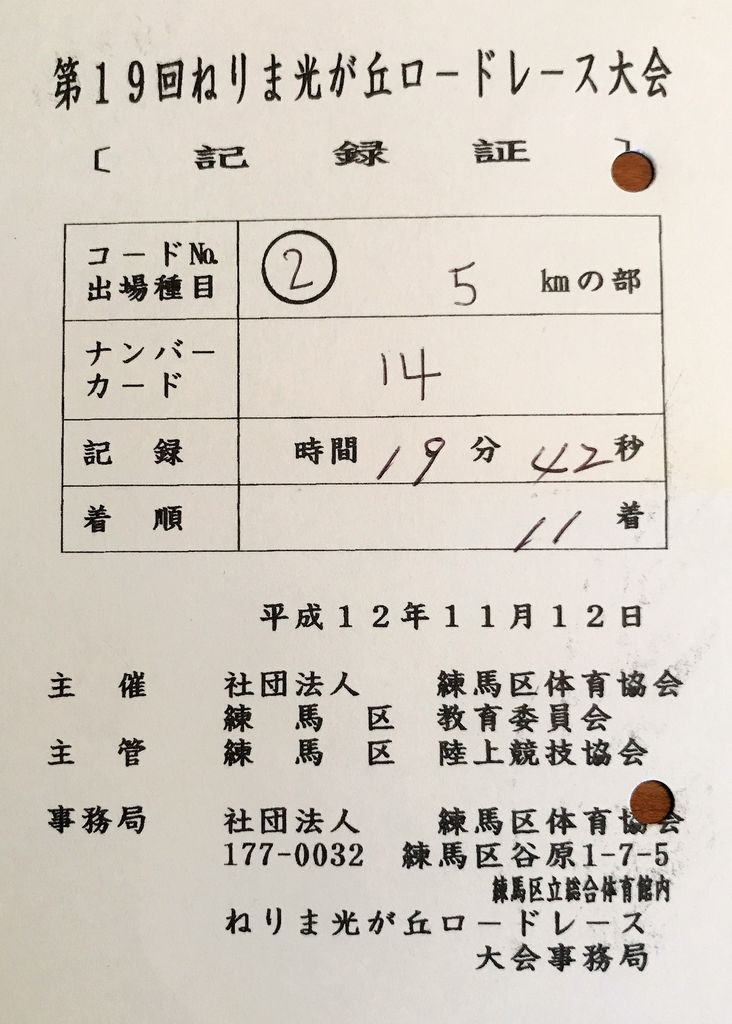 第19回ねりま光が丘ロードレース大会
〔 記 録 証 〕
コードNo. ② 5 kmの部
出場種目
ナンバー 14
カード
記 録 時間 19 分 42 秒
着 順 11 着
平成12年11月12日
主 催 社団法人 練馬区体育協会
練 馬 区 教育委員会
主 管 練 馬 区 陸上競技協会
事務局 社団法人 練馬区体育協会
177-0032 練馬区谷原1-7-5
練馬区立総合体育館内
ねりま光が丘ロードレース
大会事務局